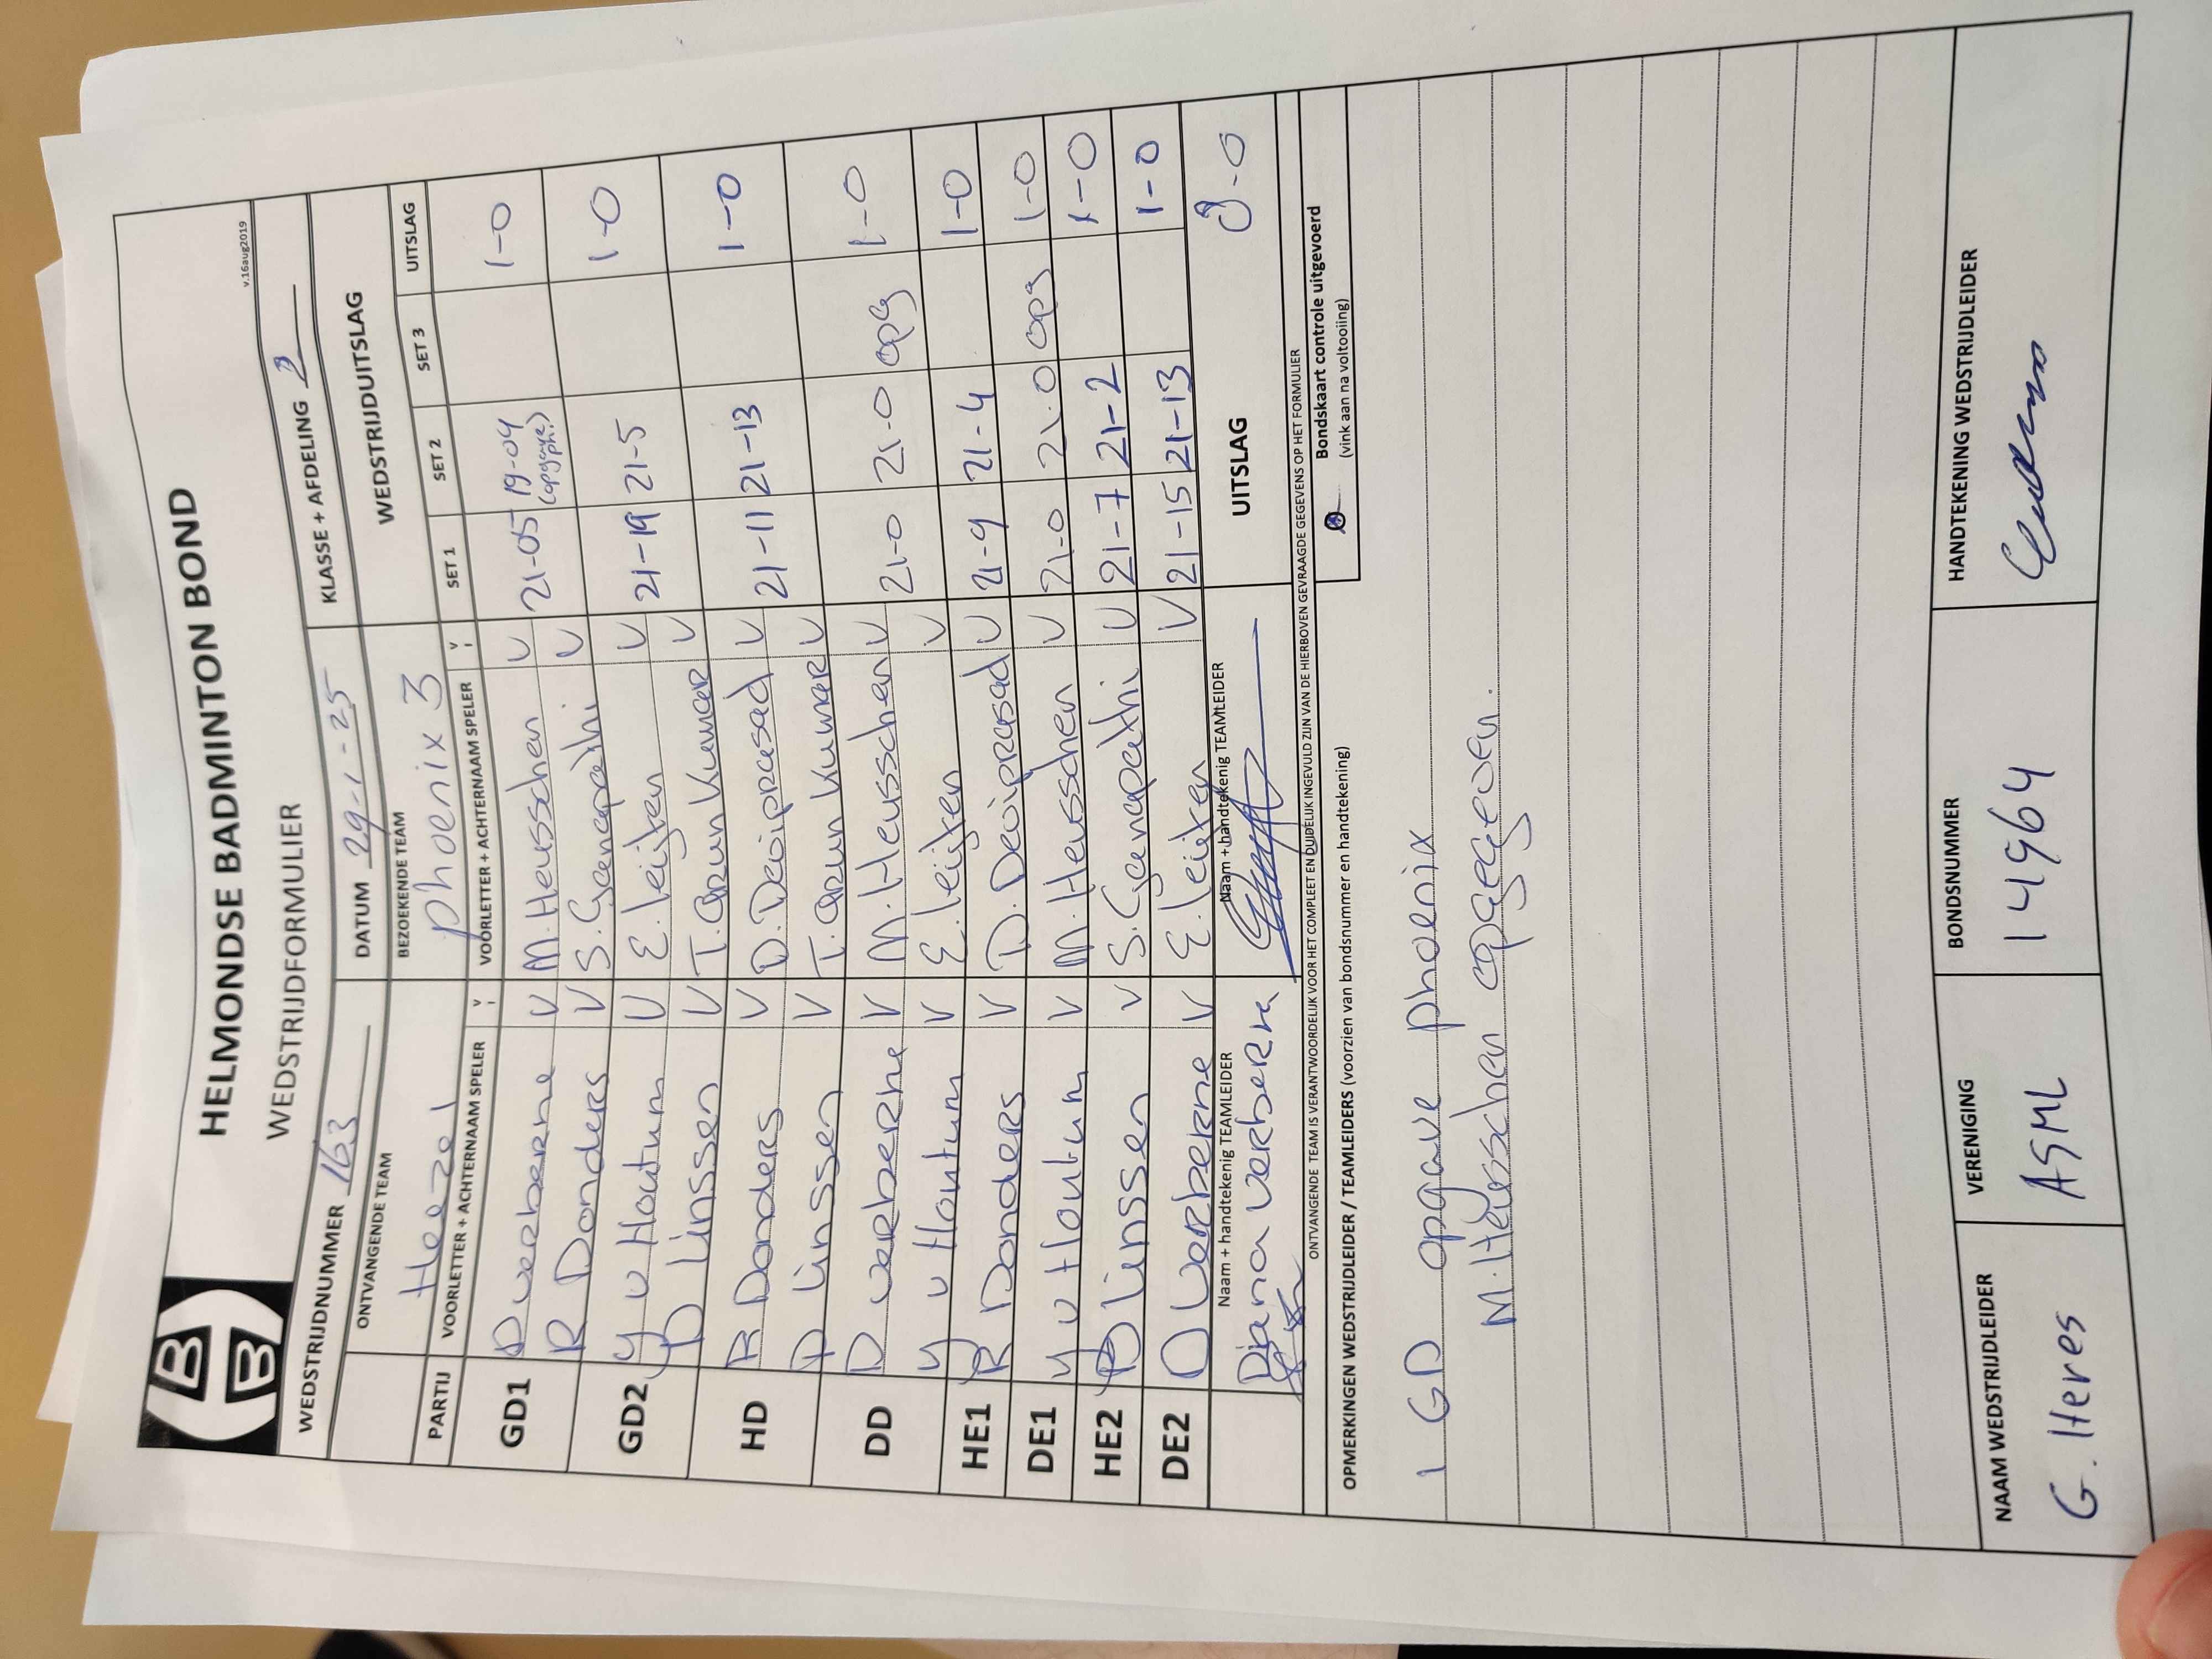 HELMONDSE BADMINTON BOND
WEDSTRIJDFORMULIER
v.16aug2019
WEDSTRIJDNUMMER 163 DATUM 29-1-25 KLASSE + AFDELING 2
ONTVANGENDE TEAM BEZOEKENDE TEAM WEDSTRIJDUITSLAG
Heeze 1 phoenix 3
PARTIJ VOORLETTER + ACHTERNAAM SPELER V VOORLETTER + ACHTERNAAM SPELER V SET 1 SET 2 SET 3 UITSLAG
GD1 D verberne V M. Heusschen V 21-05 19-04 (opgave ph.) 1-0
R Donders V S. Ganapathi V
GD2 Y v Houtum V E. Leijten V 21-19 21-5 1-0
P Linssen V T. Arun Kumar V
HD R Donders V D. Deviprasad V 21-11 21-13 1-0
P Linssen V T. Arun Kumar V
DD D verberne V M. Heusschen V 21-0 21-0 opg 1-0
Y v Houtum V E. Leijten V
HE1 R Donders V D. Deviprasad V 21-9 21-4 1-0
DE1 Y v Houtum V M. Heusschen V 21-0 21-0 opg 1-0
HE2 P Linssen V S. Ganapathi V 21-7 21-2 1-0
DE2 D verberne V E. Leijten V 21-15 21-13 1-0
Naam + handtekenig TEAMLEIDER Naam + handtekenig TEAMLEIDER UITSLAG 8-0
Diana verberne
ONTVANGENDE TEAM IS VERANTWOORDELIJK VOOR HET COMPLEET EN DUIDELIJK INGEVULD ZIJN VAN DE HIERBOVEN GEVRAAGDE GEGEVENS OP HET FORMULIER
OPMERKINGEN WEDSTRIJDLEIDER / TEAMLEIDERS (voorzien van bondsnummer en handtekening) Bondskaart controle uitgevoerd
(vink aan na voltooiing)
1 GD opgave phoenix
M. Heusschen opgegeven.
NAAM WEDSTRIJDLEIDER VERENIGING BONDSNUMMER HANDTEKENING WEDSTRIJDLEIDER
G. Heres ASML 14964